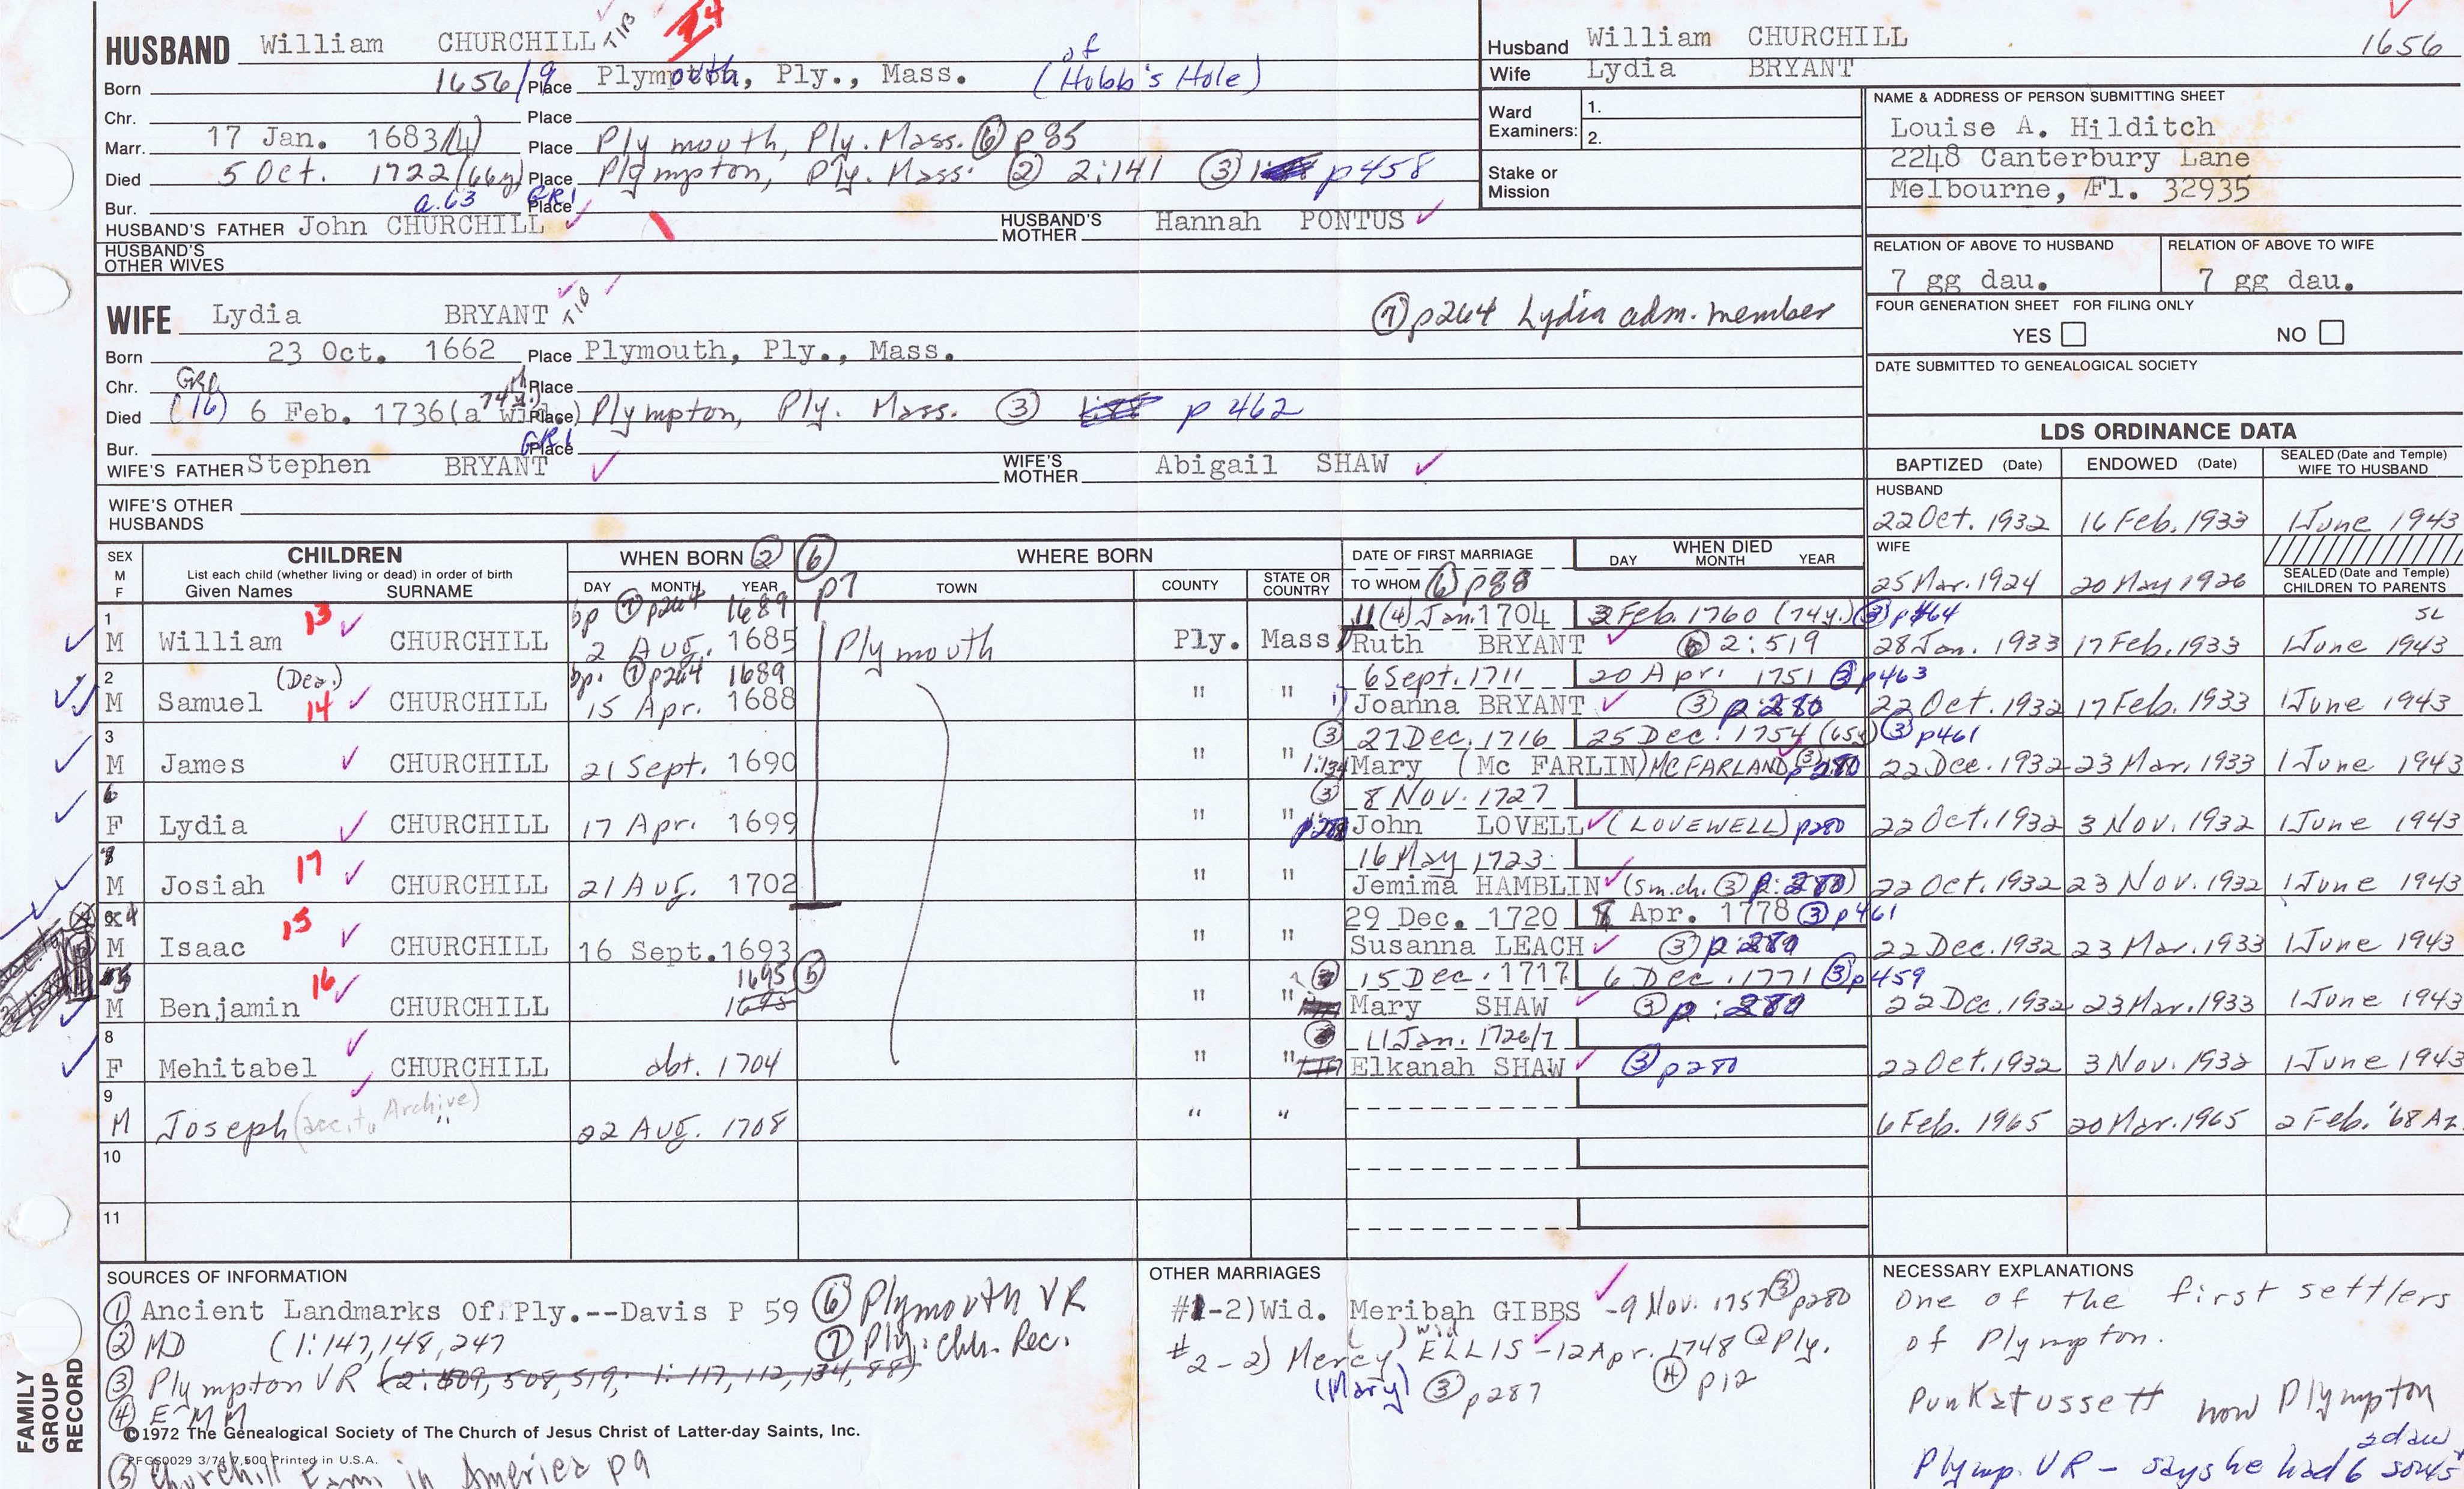 HUSBAND William CHURCHILL TIB 24
Born 1656/9 Place Plymouth, Ply., Mass. (of Hobb's Hole)
Chr. Place
Marr. 17 Jan. 1683/(4) Place Plymouth, Ply. Mass. ⑥ p85
Died 5 Oct. 1722 (66y) Place Plympton, Ply. Mass. ② 2:141 ③ p458
Bur. a.63 GR1 Place
HUSBAND'S FATHER John CHURCHILL HUSBAND'S MOTHER Hannah PONTUS
HUSBAND'S OTHER WIVES
Husband William CHURCHILL 1656
Wife Lydia BRYANT
Ward Examiners: 1.
2.
Stake or Mission
NAME & ADDRESS OF PERSON SUBMITTING SHEET
Louise A. Hilditch
2248 Canterbury Lane
Melbourne, Fl. 32935
RELATION OF ABOVE TO HUSBAND RELATION OF ABOVE TO WIFE
7 gg dau. 7 gg dau.
FOUR GENERATION SHEET FOR FILING ONLY
YES NO
DATE SUBMITTED TO GENEALOGICAL SOCIETY
WIFE Lydia BRYANT TIB ⑦ p264 Lydia adm. member
Born 23 Oct. 1662 Place Plymouth, Ply., Mass.
Chr. Place
Died (16) 6 Feb. 1736 (a wid Place) Plympton, Ply. Mass. ③ p 462
74y.)
Bur. GR1 Place
WIFE'S FATHER Stephen BRYANT WIFE'S MOTHER Abigail SHAW
WIFE'S OTHER HUSBANDS
LDS ORDINANCE DATA
BAPTIZED (Date) ENDOWED (Date) SEALED (Date and Temple) WIFE TO HUSBAND
HUSBAND
22 Oct. 1932 16 Feb. 1933 1 June 1943
WIFE
25 Mar. 1924 20 May 1926
SEALED (Date and Temple) CHILDREN TO PARENTS
SEX M F CHILDREN
List each child (whether living or dead) in order of birth
Given Names SURNAME
WHEN BORN ② ⑥ p7
DAY MONTH YEAR
WHERE BORN
TOWN COUNTY STATE OR COUNTRY
DATE OF FIRST MARRIAGE
TO WHOM ⑥ p88
WHEN DIED
DAY MONTH YEAR
1 bp ⑦ p264 1689 11(4) Jan. 1704 3 Feb. 1760 (74y.) ③ p464 SL
M William 13 CHURCHILL 2 Aug. 1685 Plymouth Ply. Mass Ruth BRYANT 2:519 28 Jan. 1933 17 Feb. 1933 1 June 1943
2 (Dea.) bp. ⑦ p264 1689 6 Sept. 1711 20 Apr. 1751 ③ p463
M Samuel 14 CHURCHILL 15 Apr. 1688 " " 1) Joanna BRYANT ③ p 280 22 Oct. 1932 17 Feb. 1933 1 June 1943
3 ③ 27 Dec. 1716 25 Dec. 1754 (65y) ③ p461
M James CHURCHILL 21 Sept. 1690 " " 1:134 Mary (Mc FARLIN) MCFARLAND ③ p280 22 Dec. 1932 23 Mar. 1933 1 June 1943
6 ③ 8 Nov. 1727
F Lydia CHURCHILL 17 Apr. 1699 " " John LOVELL (LOVEWELL) p280 22 Oct. 1932 3 Nov. 1932 1 June 1943
16 May 1723
M Josiah 17 CHURCHILL 21 Aug. 1702 " " Jemima HAMBLIN (Sm.ch. ③ p. 280) 22 Oct. 1932 23 Nov. 1932 1 June 1943
4 29 Dec. 1720 8 Apr. 1778 ③ p461
M Isaac 15 CHURCHILL 16 Sept. 1693 " " Susanna LEACH ③ p 280 22 Dec. 1932 23 Mar. 1933 1 June 1943
5 1695 ⑤ 15 Dec. 1717 6 Dec. 1771 ③ p459
M Benjamin 16 CHURCHILL 1695 " " Mary SHAW ③ p 280 22 Dec. 1932 23 Mar. 1933 1 June 1943
8 11 Jan. 1726/7
F Mehitabel CHURCHILL abt. 1704 " " Elkanah SHAW ③ p280 22 Oct. 1932 3 Nov. 1932 1 June 1943
9
M Joseph (acc. to Archive) " 22 Aug. 1708 " " 6 Feb. 1965 20 Mar. 1965 2 Feb. '68 Az.
10
11
SOURCES OF INFORMATION
① Ancient Landmarks Of Ply.--Davis P 59 ⑥ Plymouth VR
② MD (1:147,148,247 ⑦ Ply. Chh. Rec.
③ Plympton VR (2:509, 508, 519, 1: 117, 112, 134, 88)
④ E-MM
©1972 The Genealogical Society of The Church of Jesus Christ of Latter-day Saints, Inc.
PFGS0029 3/74 7,500 Printed in U.S.A.
⑤ Churchill Fam. in America p9
FAMILY GROUP RECORD
OTHER MARRIAGES
#1-2) Wid. Meribah GIBBS -9 Nov. 1757 ③ p280
#2-2) Mercy ( ) wid ELLIS -12 Apr. 1748 @ Ply.
(Mary) ③ p287 p12
NECESSARY EXPLANATIONS
One of the first settlers
of Plympton.
Punkatussett now Plympton
2 dau
Plymp. VR - says he had 6 sons +